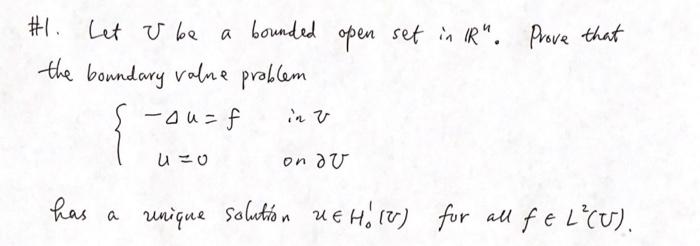 #1. Let U be a bounded open set in ℝⁿ. Prove that
the boundary value problem
{ -Δu = f in U
u = 0 on ∂U
has a unique solution u ∈ H₀¹(U) for all f ∈ L²(U).